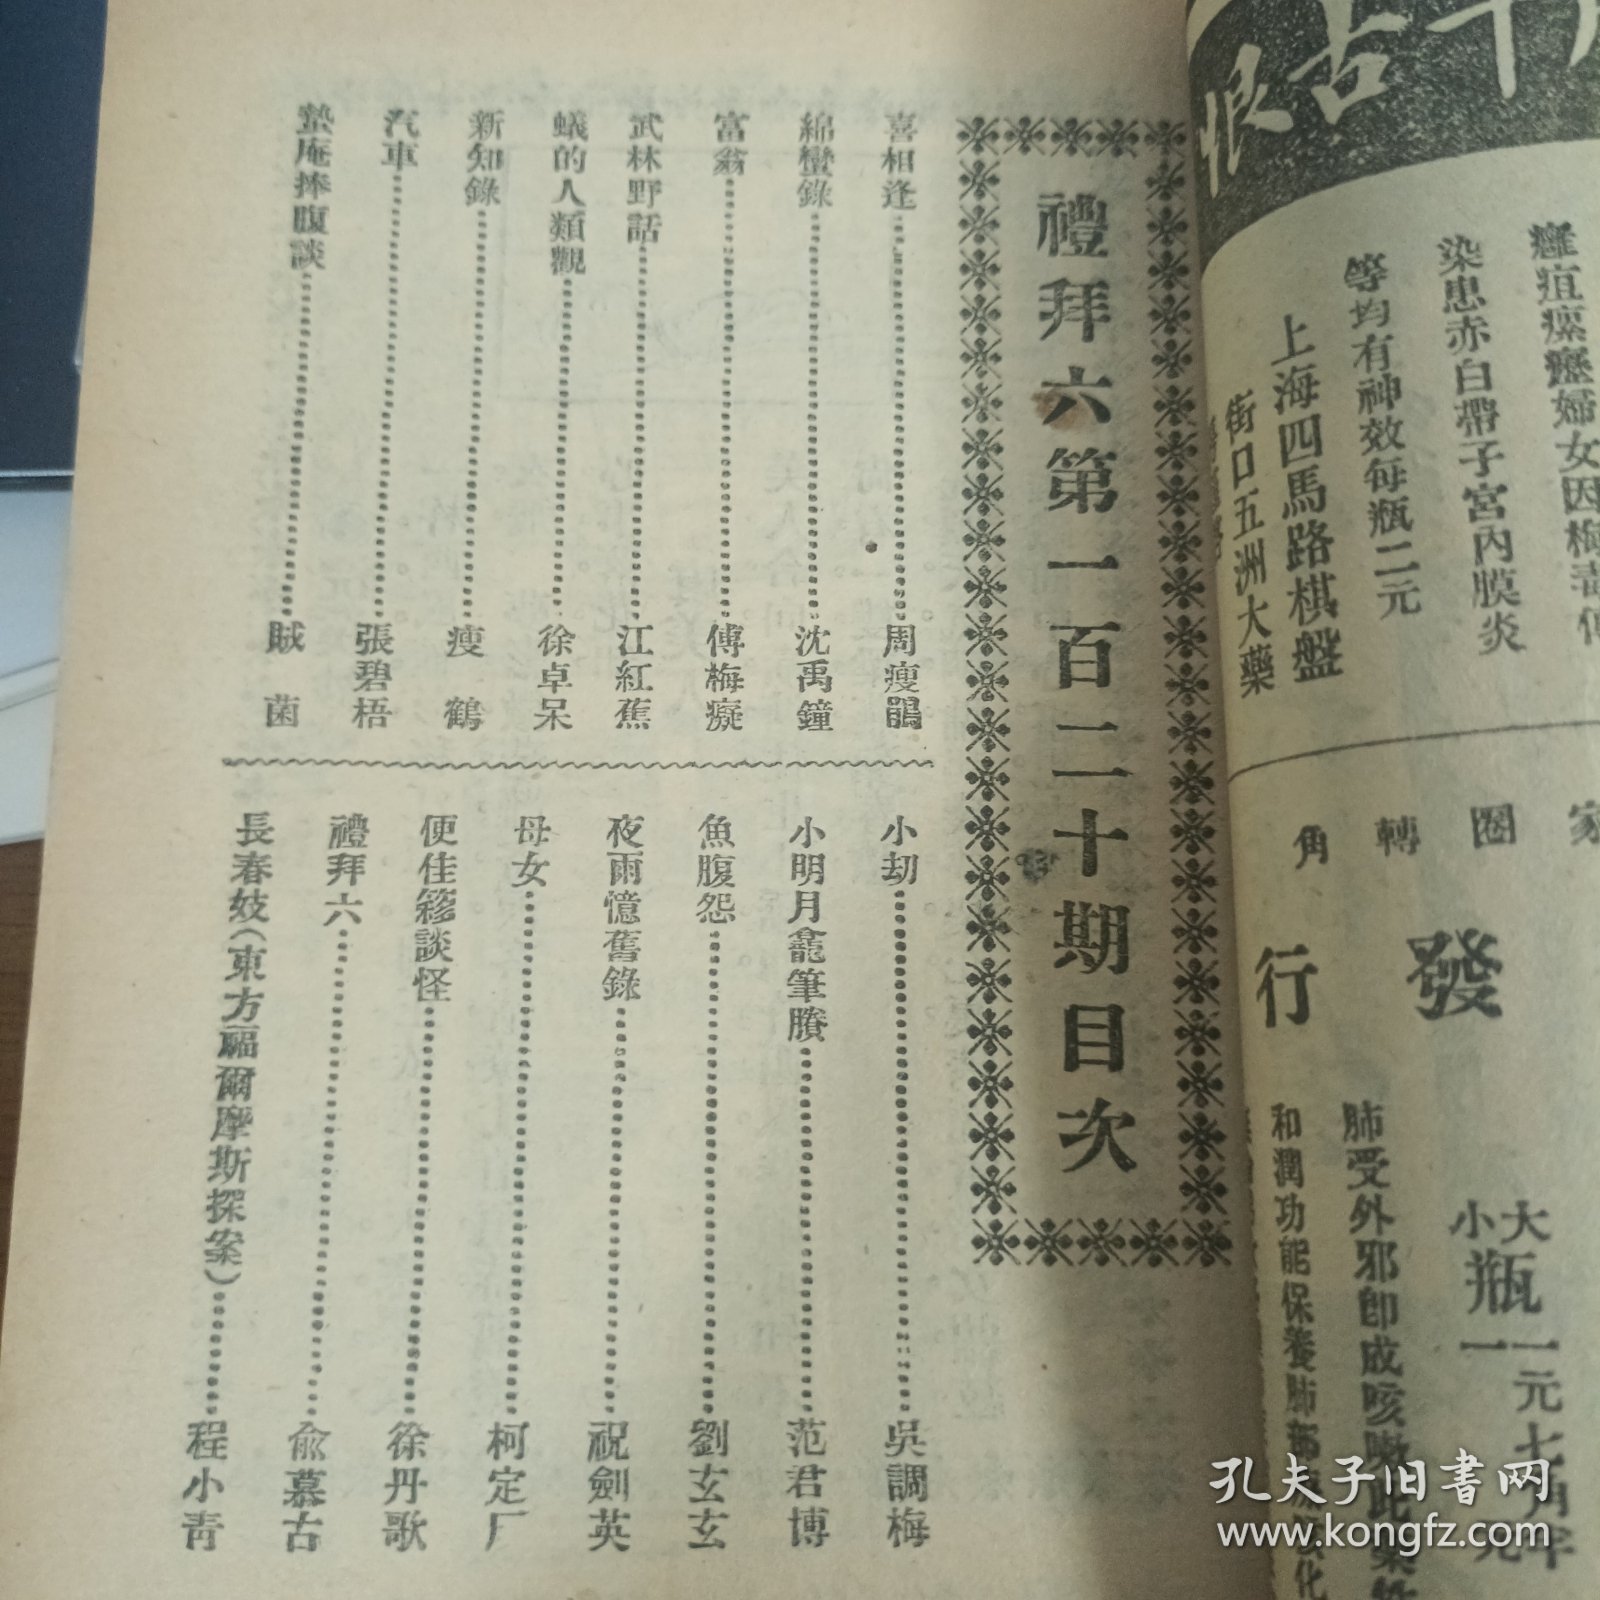 禮拜六第一百二十期目次
喜相逢 周瘦鵑
綿蠻錄 沈禹鐘
富翁 傅梅癡
武林野話 江紅蕉
蟻的人類觀 徐卓呆
新知錄 瘦鶴
汽車 張碧梧
蟄庵捧腹談 賊菌
小刼 吳調梅
小明月龕筆賸 范君博
魚腹怨 劉玄玄
夜雨憶舊錄 祝劍英
母女 柯定厂
便佳簃談怪 徐丹歌
禮拜六 俞慕古
長春妓(東方福爾摩斯探案) 程小靑
恨古千
癰疽瘰癧婦女因梅毒傳
染患赤白帶子宮內膜炎
等均有神效每瓶二元
上海四馬路棋盤
街口五洲大藥
家
圈
轉
角
發
行
大瓶一元七角半
小瓶一元
肺受外邪卽成咳嗽此藥
和潤功能保養肺部
孔夫子旧書网
www.kongfz.com